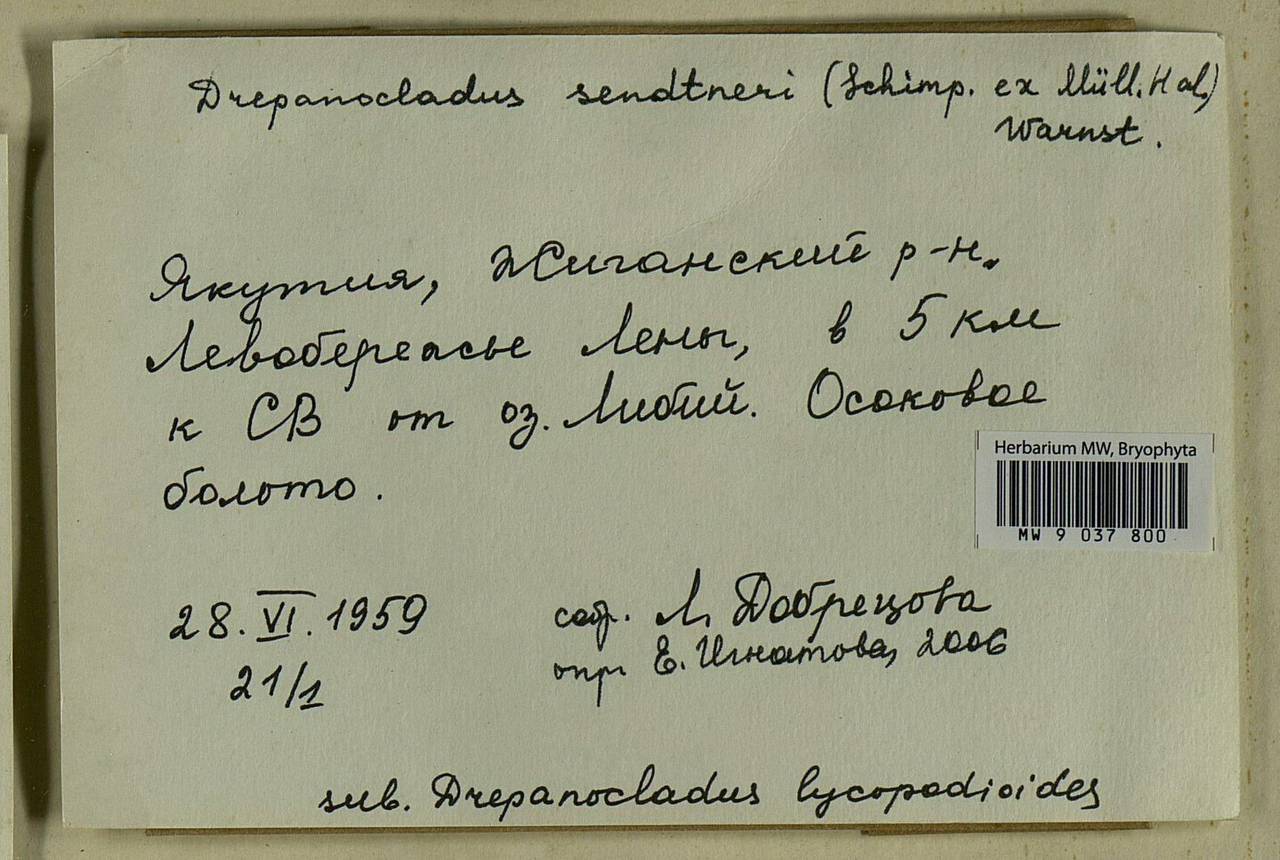 Drepanocladus sendtneri (Schimp. ex Müll. Hal.)
Warnst.
Якутия, Жиганский р-н.
Левобережье Лены, в 5 км
к СВ от оз. Либий. Осоковое
болото.
Herbarium MW, Bryophyta
MW 9 037 800
28.VI.1959
21/1
соб. Л. Добрецова
опр. Е. Игнатова, 2006
sub. Drepanocladus lycopodioides